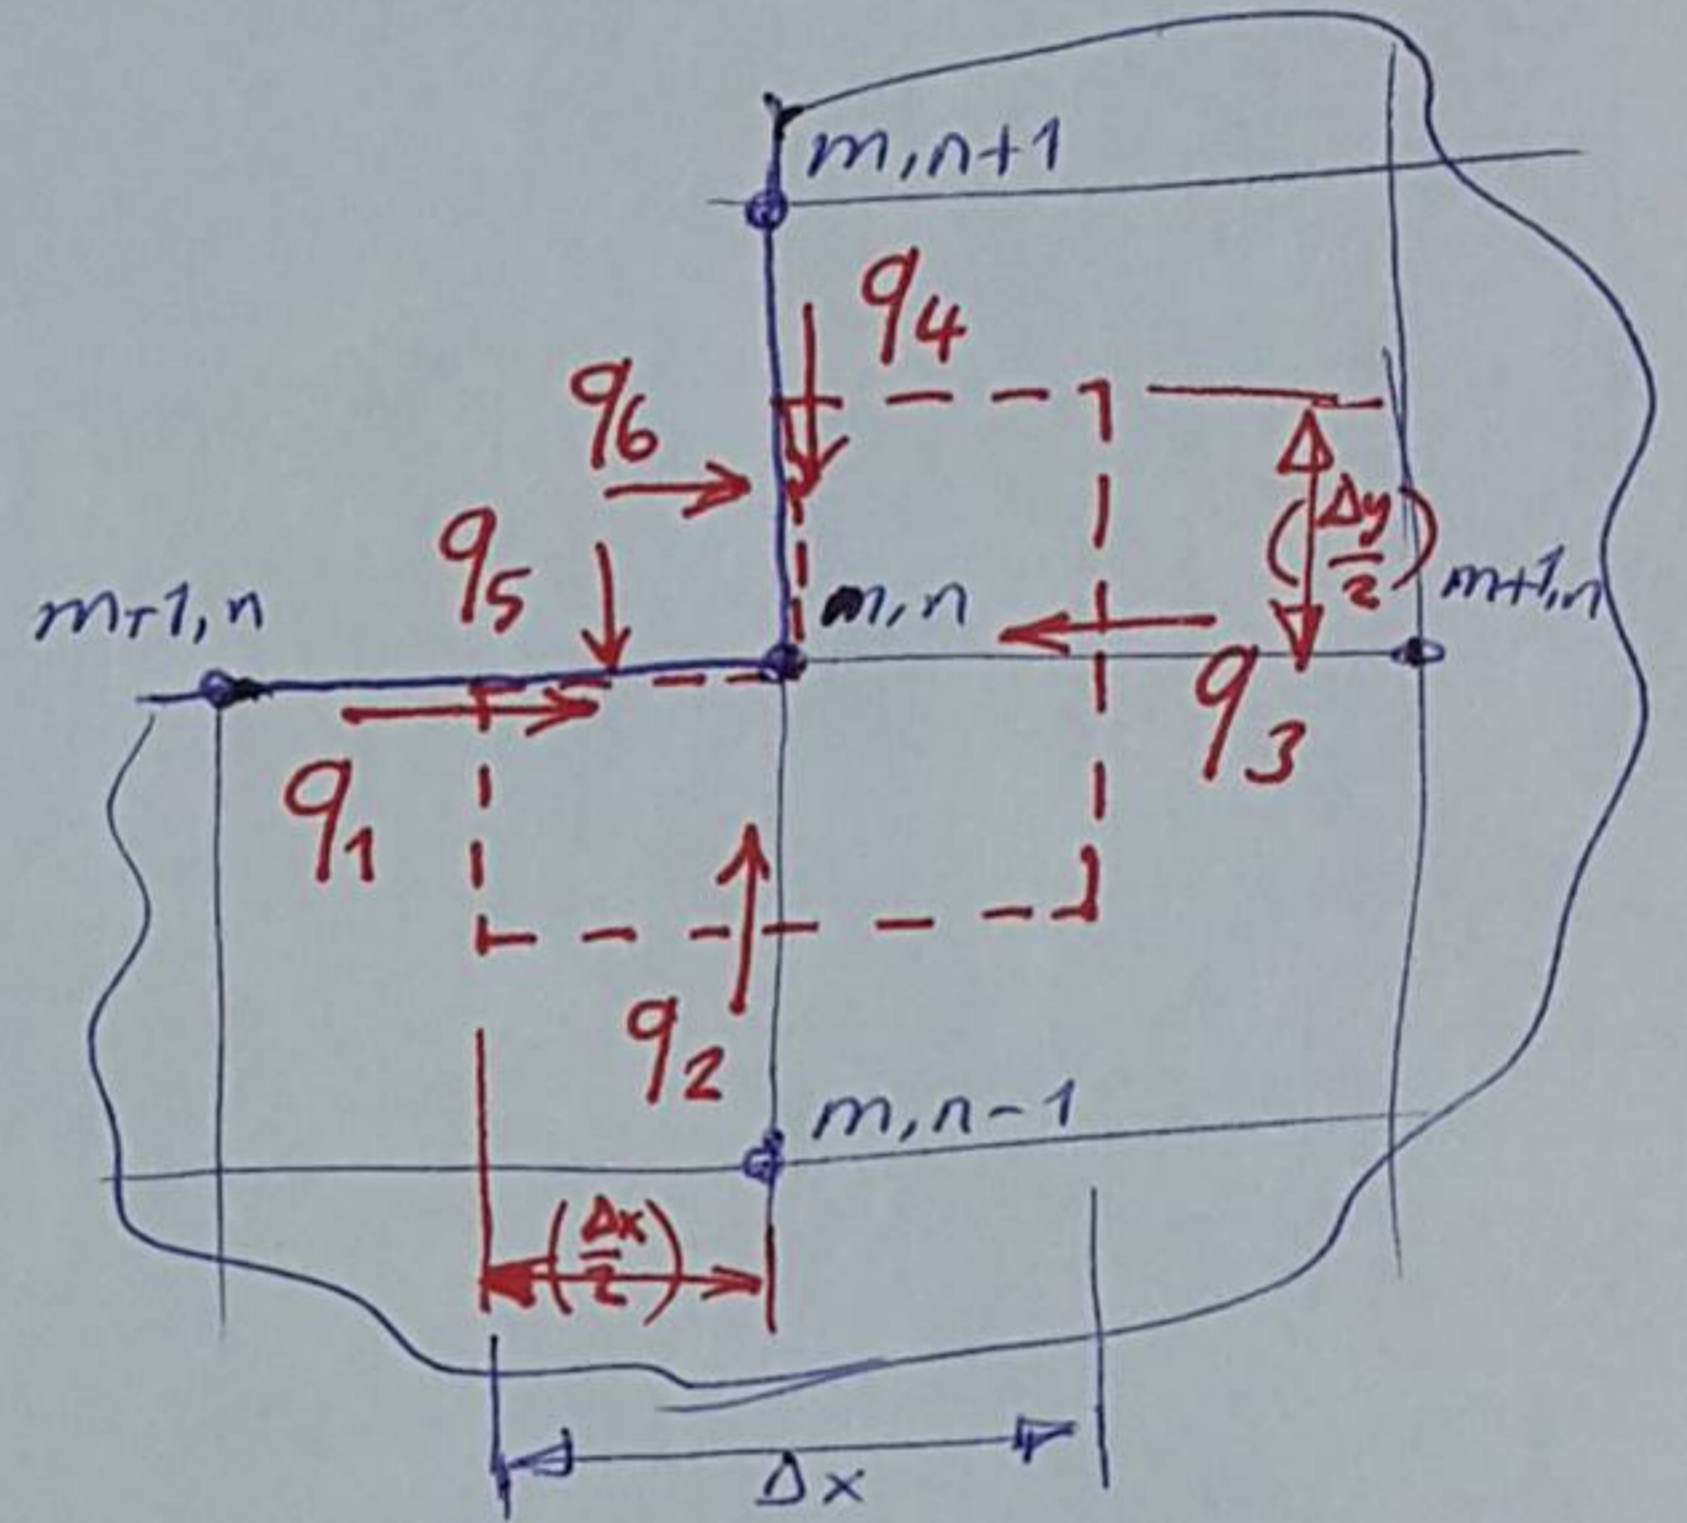 m,n+1
q4
q6
q5
(Δy/2)
m+1,n
m,n
m+1,n
q3
q1
q2
m,n-1
(Δx/2)
Δx